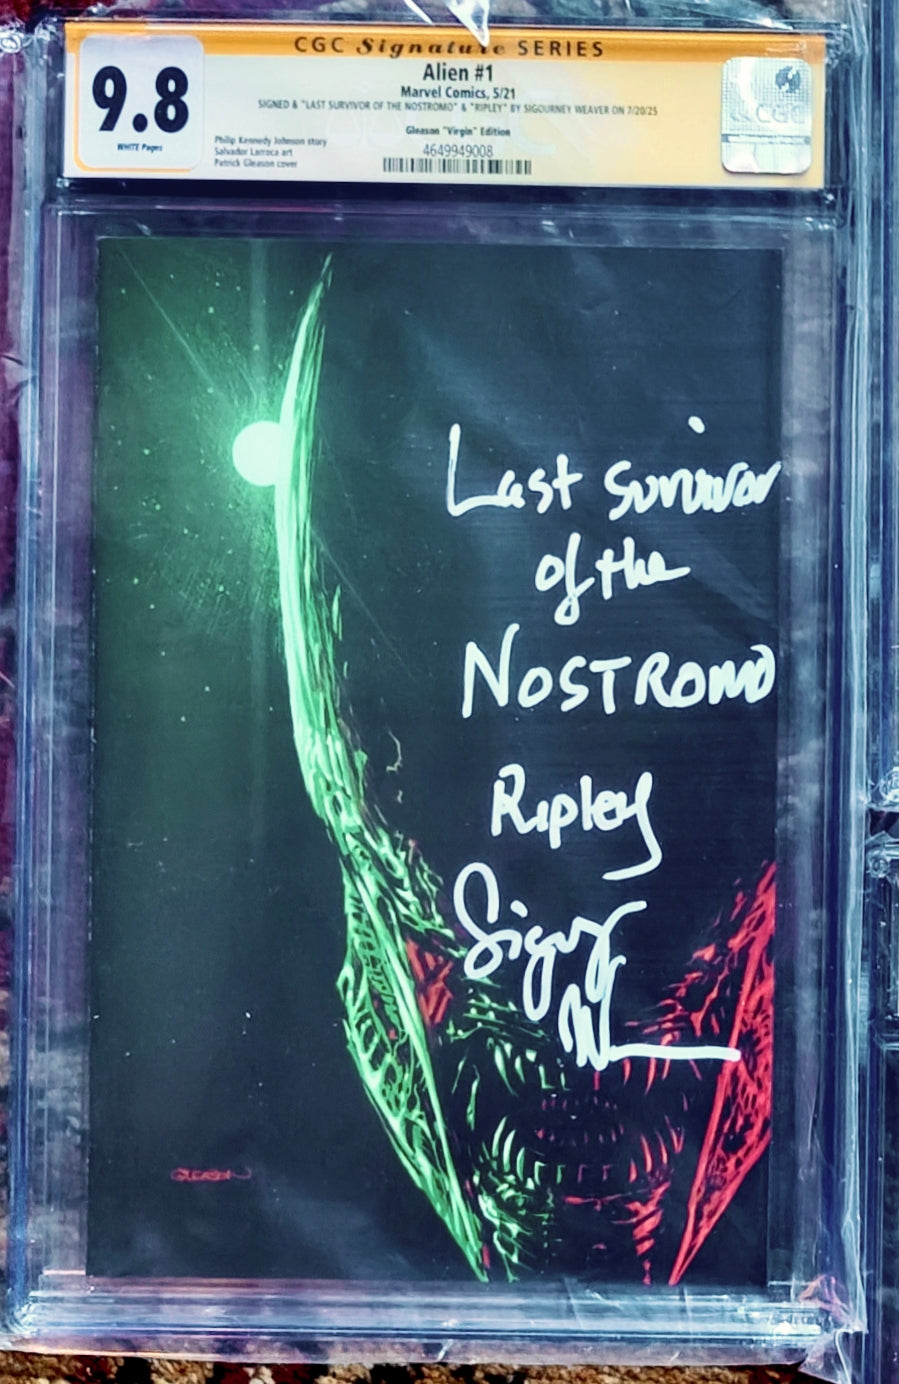 CGC Signature SERIES
9.8
WHITE Pages
Alien #1
Marvel Comics, 5/21
SIGNED & "LAST SURVIVOR OF THE NOSTROMO" & "RIPLEY" BY SIGOURNEY WEAVER ON 7/20/25
Gleason "Virgin" Edition
Philip Kennedy Johnson story
Salvador Larroca art
Patrick Gleason cover
4649949008
CGC
Last Survivor
of the
NOSTROMO
Ripley
Sigourney
W
GLEASON